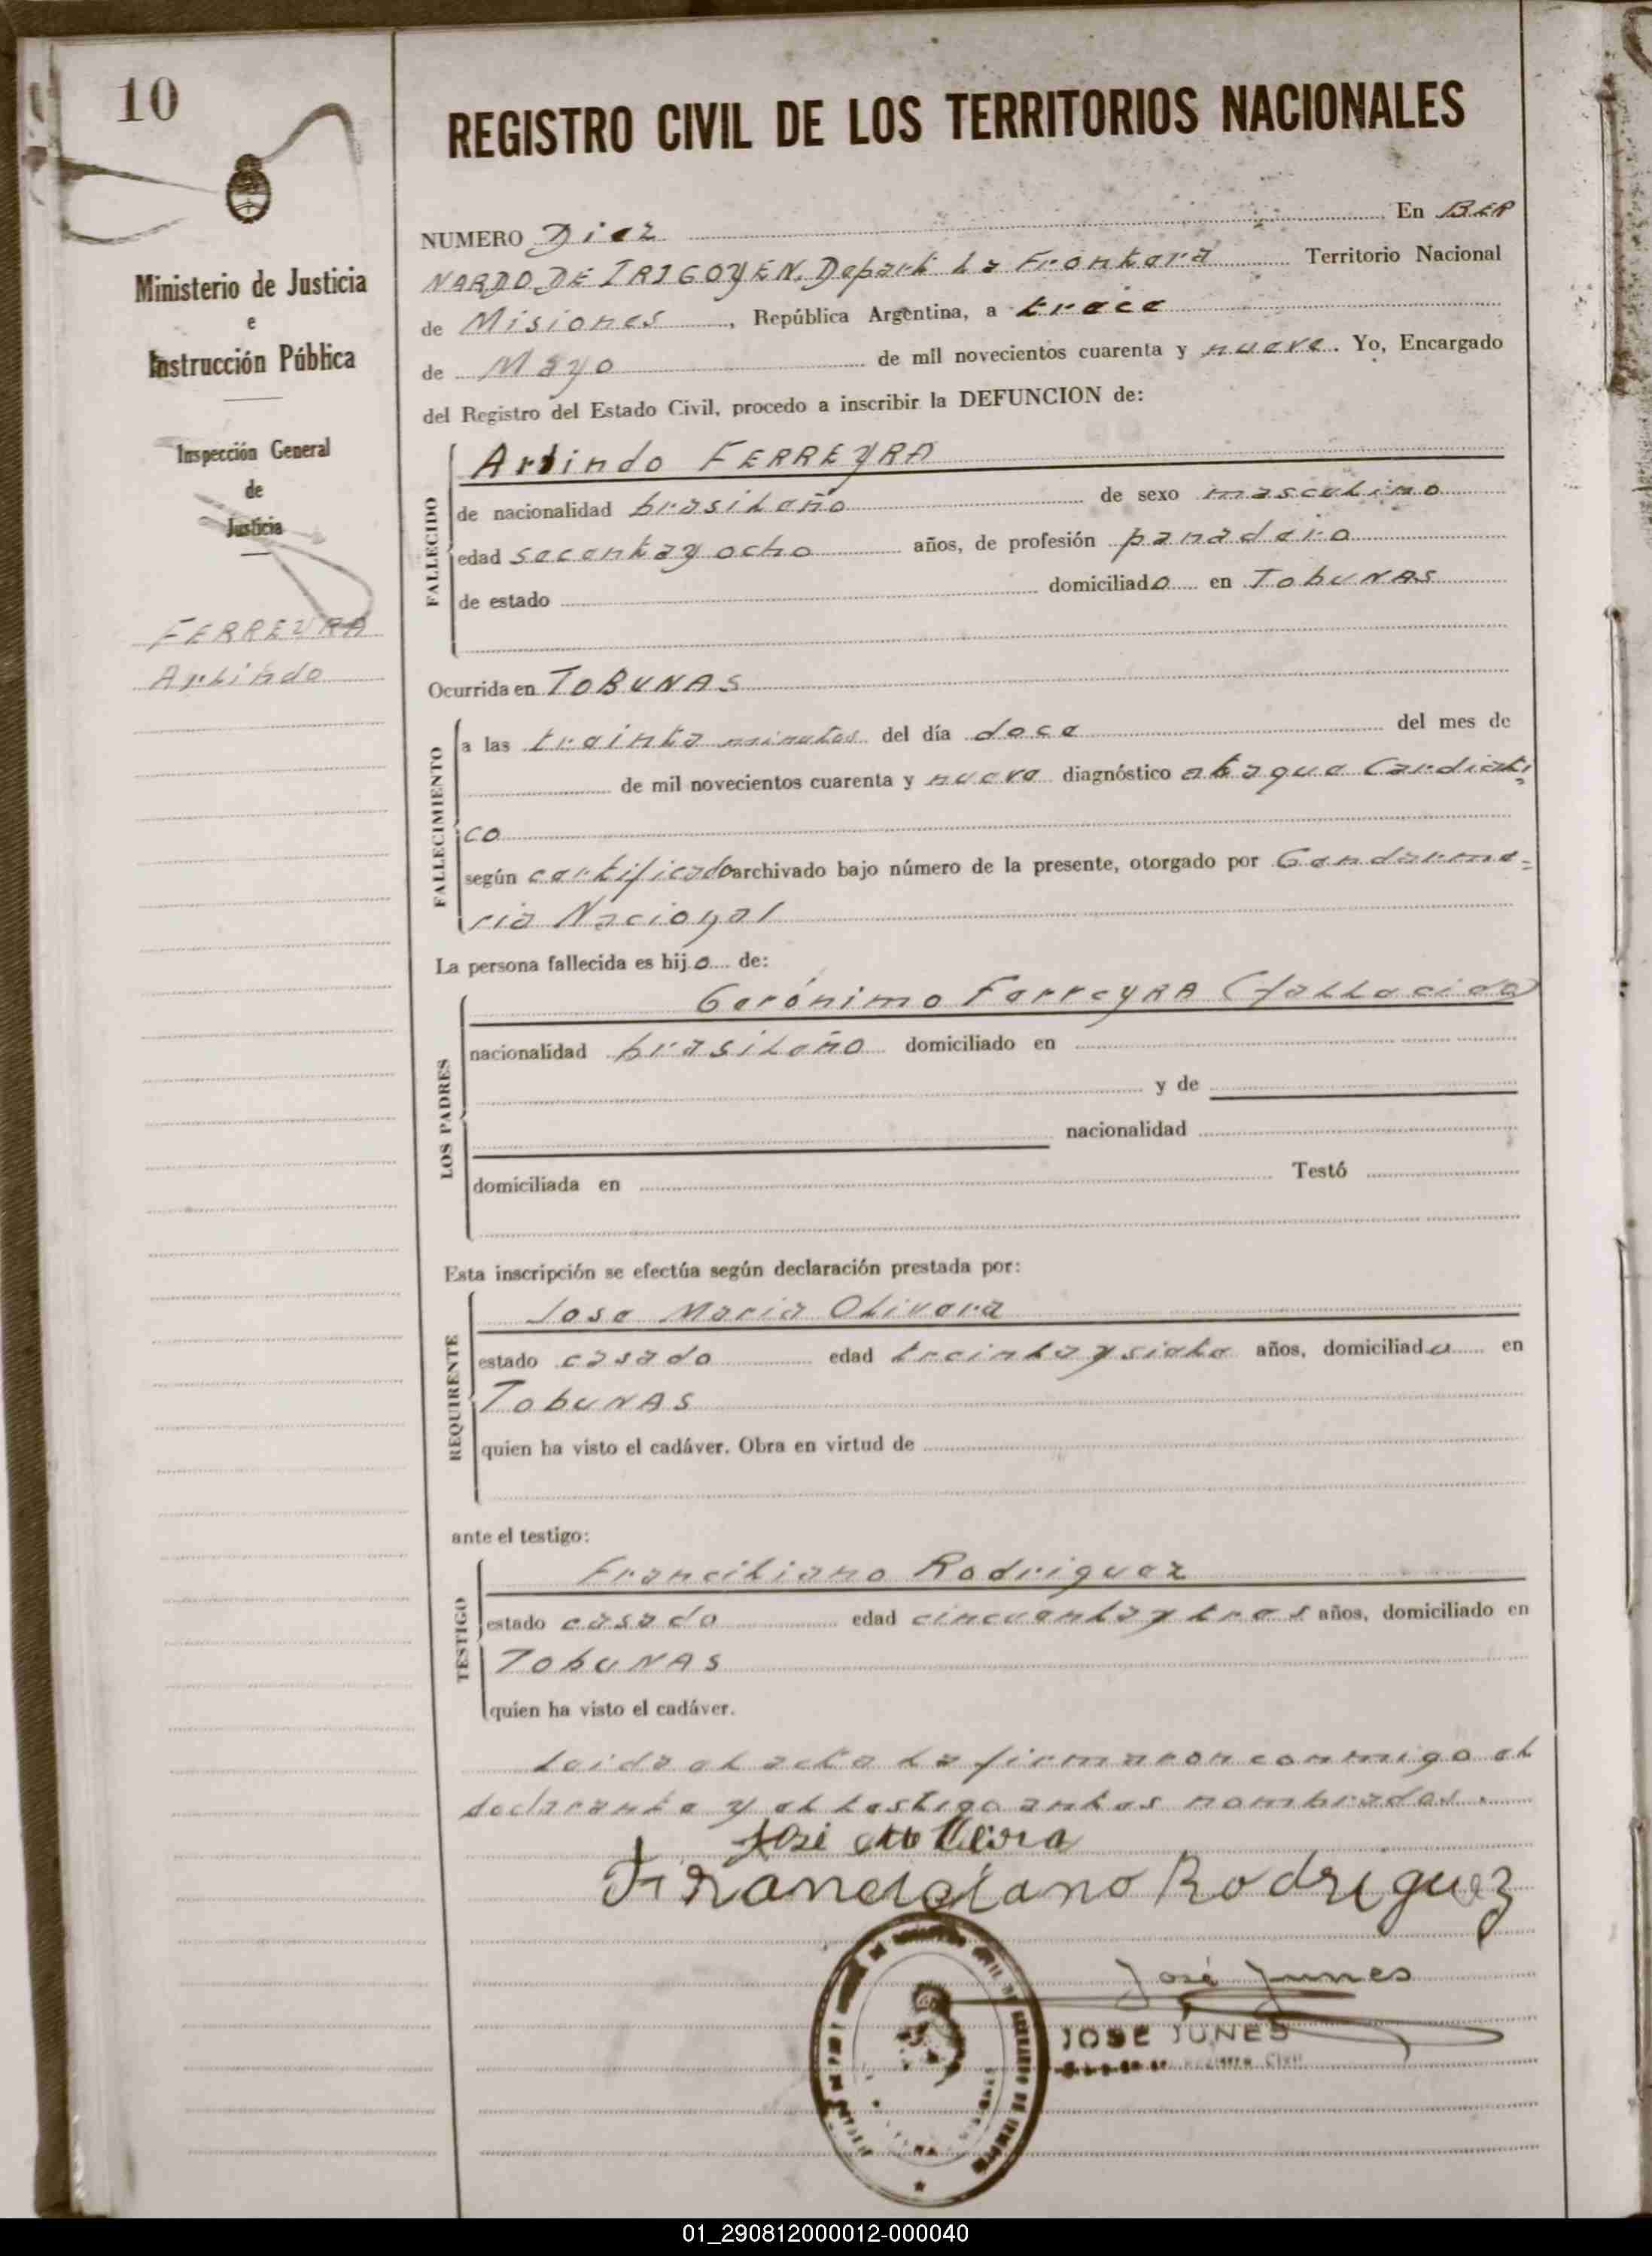 10
REGISTRO CIVIL DE LOS TERRITORIOS NACIONALES
Ministerio de Justicia
e
Instrucción Pública
Inspección General
de
Justicia
FERREYRA
Arlindo
NUMERO Diez En BER
NARDO DE IRIGOYEN. Depart La Frontera Territorio Nacional
de Misiones, República Argentina, a trece
de Mayo de mil novecientos cuarenta y nueve. Yo, Encargado
del Registro del Estado Civil, procedo a inscribir la DEFUNCION de:
FALLECIDO
Arlindo FERREYRA
de nacionalidad brasileño de sexo masculino
edad secenta y ocho años, de profesión panadero
de estado domiciliado en TobUNAS
Ocurrida en TOBUNAS
FALLECIMIENTO
a las treinta minutos del día doce del mes de
de mil novecientos cuarenta y nueve diagnóstico ataque Cardiati=
co
según certificado archivado bajo número de la presente, otorgado por Gendarme=
ria Nacional
La persona fallecida es hijo de:
LOS PADRES
Gerónimo FerreyRA (fallecido)
nacionalidad brasileño domiciliado en
y de
nacionalidad
domiciliada en Testó
Esta inscripción se efectúa según declaración prestada por:
REQUIRENTE
Jose Maria Olivera
estado casado edad treinta y siete años, domiciliado en
TobUNAS
quien ha visto el cadáver. Obra en virtud de
ante el testigo:
TESTIGO
Franciliano Rodriguez
estado casado edad cincuenta y tres años, domiciliado en
TobUNAS
quien ha visto el cadáver.
Leida el acta la firmaron conmigo el
declarante y el testigo antes nombrados.
José
Rodriguez
José Junes
JOSE JUNES
Registro Civil
01_290812000012-000040